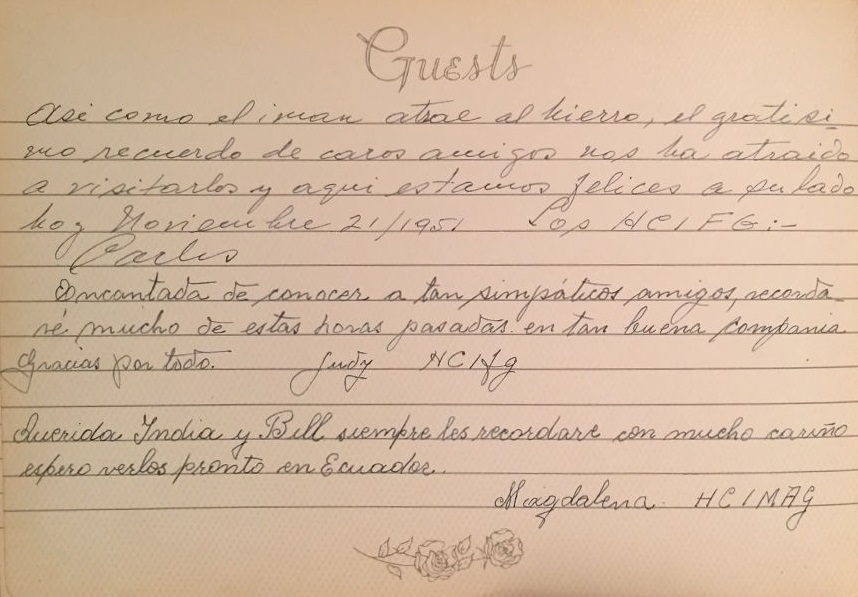 Guests
Asi como el iman atrae al hierro, el gratisi-
mo recuerdo de caros amigos nos ha atraido
a visitarlos y aqui estamos felices a su lado
hoy Noviembre 21/1951 Los HC1FG:-
Carlos
Encantada de conocer a tan simpáticos amigos, recorda-
ré mucho de estas horas pasadas en tan buena compania
Gracias por todo. Judy HC1fg
Querida India y Bill siempre les recordare con mucho cariño
espero verlos pronto en Ecuador.
Magdalena. HC1MAG